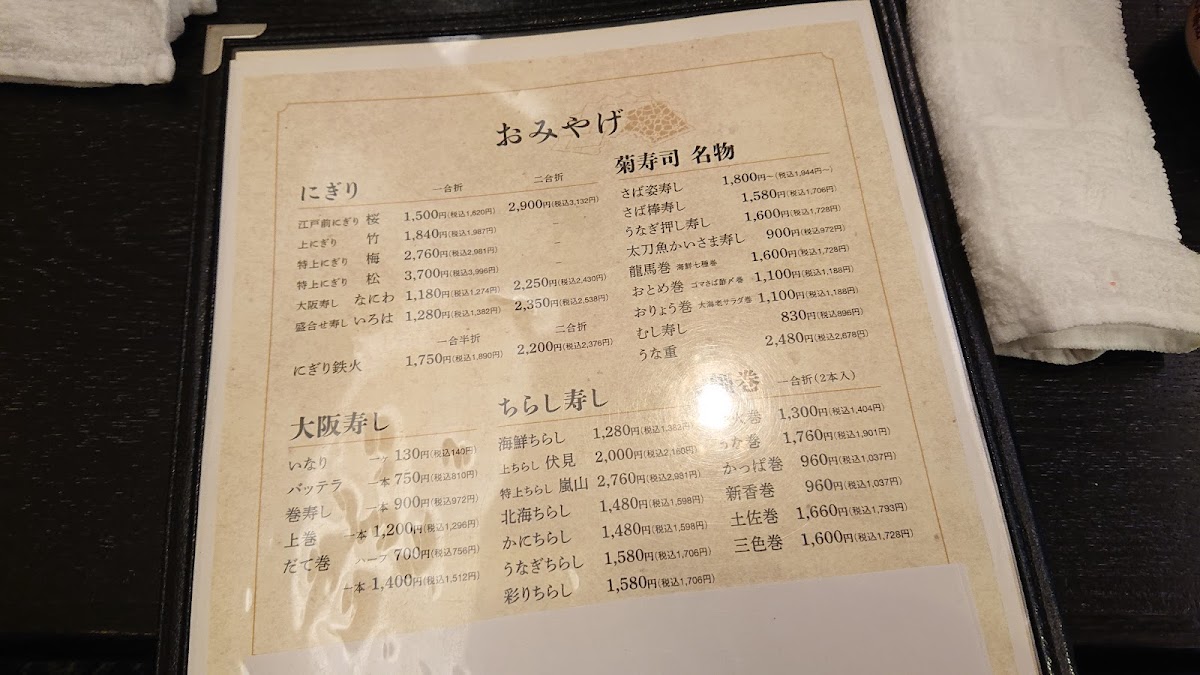 おみやげ
にぎり 一合折 二合折
江戸前にぎり 桜 1,500円(税込1,620円) 2,900円(税込3,132円)
上にぎり 竹 1,840円(税込1,987円) –
特上にぎり 梅 2,760円(税込2,981円) –
特上にぎり 松 3,700円(税込3,996円) –
大阪寿し なにわ 1,180円(税込1,274円) 2,250円(税込2,430円)
盛合せ寿し いろは 1,280円(税込1,382円) 2,350円(税込2,538円)
一合半折 二合折
にぎり鉄火 1,750円(税込1,890円) 2,200円(税込2,376円)
菊寿司 名物
さば姿寿し 1,800円～(税込1,944円～)
さば棒寿し 1,580円(税込1,706円)
うなぎ押し寿し 1,600円(税込1,728円)
太刀魚かいさま寿し 900円(税込972円)
龍馬巻 海鮮七種巻 1,600円(税込1,728円)
おとめ巻 ゴマさば酢〆巻 1,100円(税込1,188円)
おりょう巻 大海老サラダ巻 1,100円(税込1,188円)
むし寿し 830円(税込896円)
うな重 2,480円(税込2,678円)
大阪寿し
いなり 一ヶ 130円(税込140円)
バッテラ 一本 750円(税込810円)
巻寿し 一本 900円(税込972円)
上巻 一本 1,200円(税込1,296円)
だて巻 ハーフ 700円(税込756円)
一本 1,400円(税込1,512円)
ちらし寿し
海鮮ちらし 1,280円(税込1,382円)
上ちらし 伏見 2,000円(税込2,160円)
特上ちらし 嵐山 2,760円(税込2,981円)
北海ちらし 1,480円(税込1,598円)
かにちらし 1,480円(税込1,598円)
うなぎちらし 1,580円(税込1,706円)
彩りちらし 1,580円(税込1,706円)
巻 一合折(2本入)
火巻 1,300円(税込1,404円)
な巻 1,760円(税込1,901円)
かっぱ巻 960円(税込1,037円)
新香巻 960円(税込1,037円)
土佐巻 1,660円(税込1,793円)
三色巻 1,600円(税込1,728円)